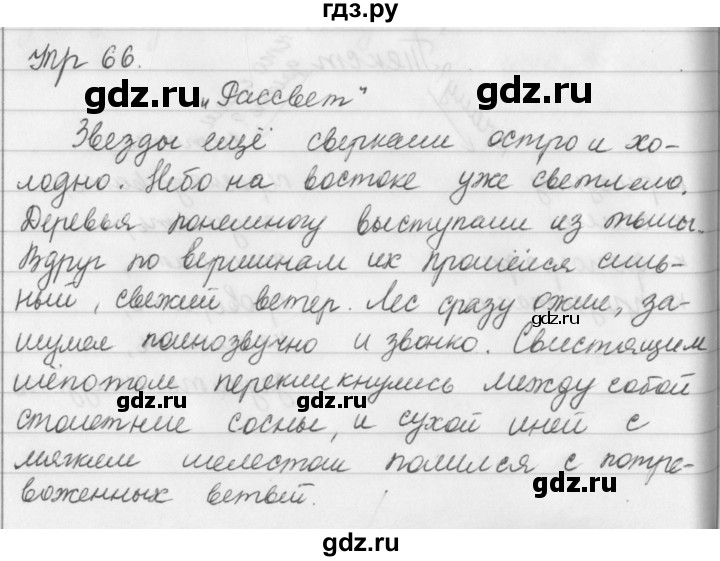 гдз.ру
Упр 66.
„Рассвет"
gdz.ru gdz.ru
Звезды ещё сверкали остро и хо-
лодно. Небо на востоке уже светлело.
Деревья понемногу выступали из тьмы.
Вдруг по вершинам их прошёлся силь-
ный, свежий ветер. Лес сразу ожил, за-
gdz.ru gdz.ru
шумел полнозвучно и звонко. Свистящим
шёпотом перекликнулись между собой
столетние сосны, и сухой иней с
мягким шелестом полился с потре-
gdz.ru
воженных ветвей.
gdz.ru
gdz.ru